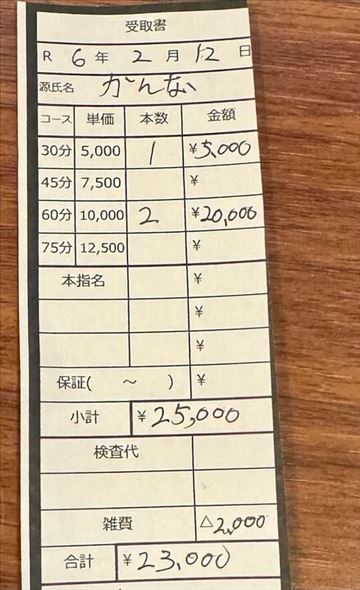 受取書
R 6 年 2 月 12 日
源氏名 かんな
コース 単価 本数 金額
30分 5,000 1 ¥5,000
45分 7,500 ¥
60分 10,000 2 ¥20,000
75分 12,500 ¥
本指名 ¥
¥
¥
保証( ～ ) ¥
小計 ¥25,000
検査代
雑費 △2,000
合計 ¥23,000